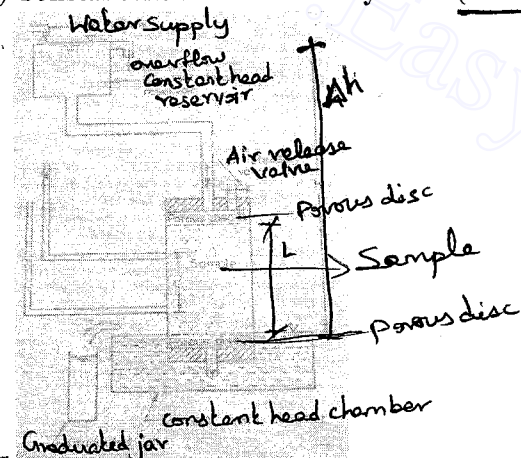 Water supply
overflow
constant head
reservoir
Δh
Air release
valve
Porous disc
L
Sample
Porous disc
constant head chamber
Graduated jar